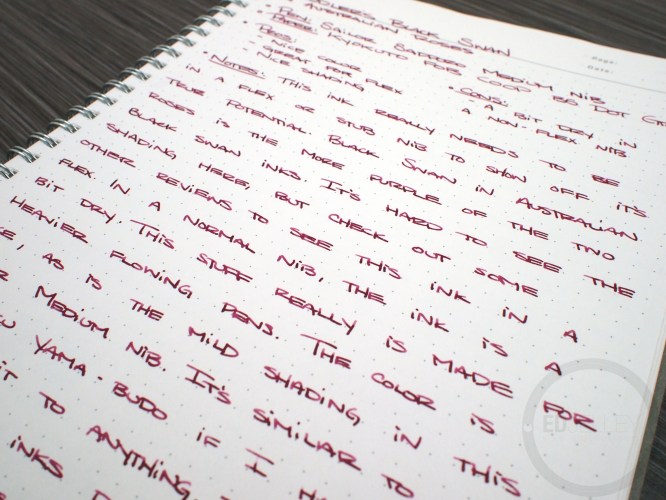 Black Swan
Australian Roses
Page:
• Pen: Sailor Sapporo Medium Nib
Date:
• Paper: Kyokuto FOB COOP B5 Dot
• Pros:
- Nice Color
- Great for Flex
- Nice Shading
• Cons:
- A bit dry in
a non-flex nib
• Notes: This ink really needs to be
in a flex or stub nib to show off it's
true potential. Black Swan in Australian
Roses is the more purple of the two
Black Swan inks. It's hard to see the
shading here, but check out some
other reviews to see this ink in a
flex. In a normal nib, the ink is a
bit dry. This stuff really is made for
heavier flowing pens. The color is
, as is the mild shading in this
Medium nib. It's similar to
Yama-Budo if I
it to anything
inks